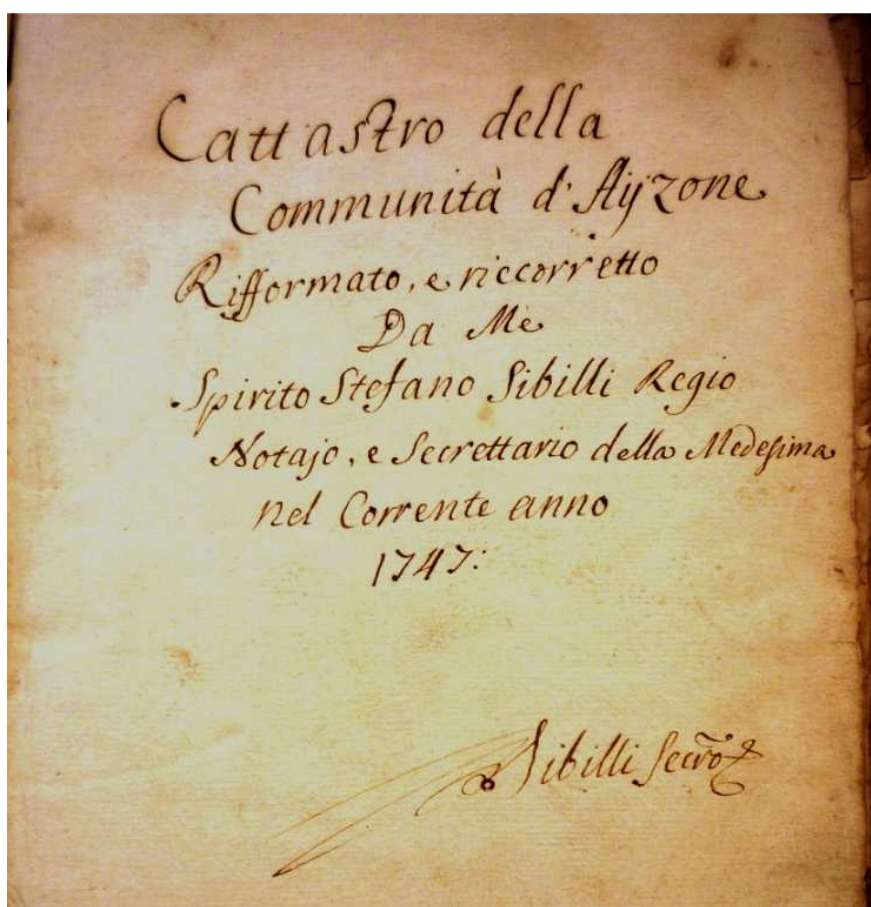 Cattastro della
Communità d'Aÿzone
Rifformato, e riccorretto
Da Me
Spirito Stefano Sibilli Regio
Notajo, e Secrettario della Medesima
nel Corrente anno
1747:
Sibilli Secro